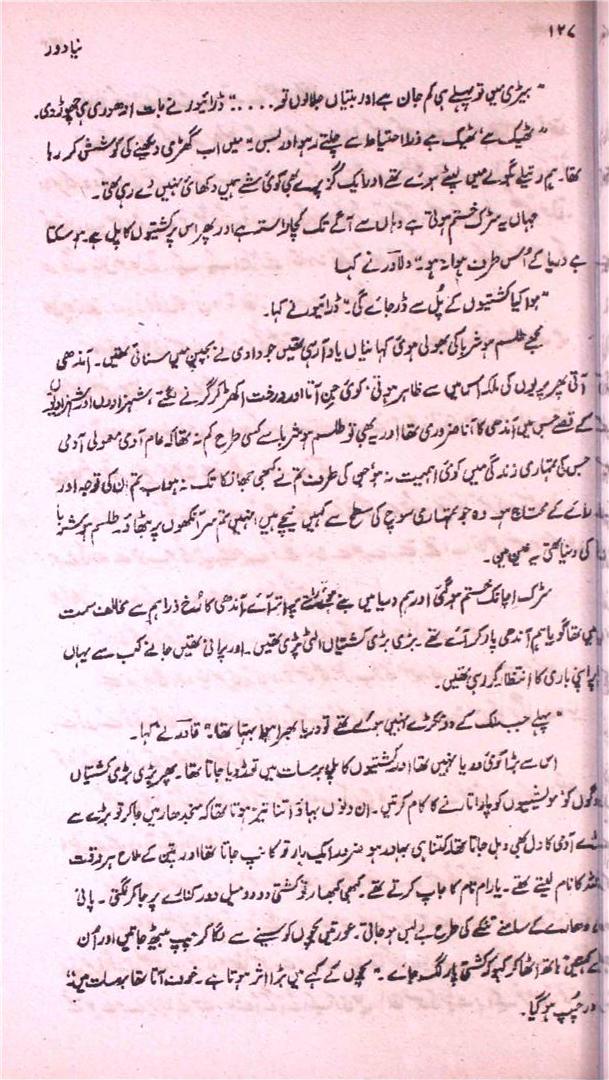 ۱۲۷
نیا دور
" بیڑی میں تو پہلے ہی کم جان ہے اور بتیاں جلا لوں تو . . . ." ڈرائیور نے بات ادھوری ہی چھوڑ دی۔
" ٹھیک ہے ٹھیک ہے ذرا احتیاط سے چلتے رہو اور بس " میں اب گھڑی دیکھنے کی کوشش کر رہا
تھا۔ ہم ریتیلے بگولے میں لپٹے ہوئے تھے اور ایک گز پرے بھی کوئی شے ہمیں دکھائی نہیں دے رہی تھی۔
جہاں یہ سڑک ختم ہوتی ہے وہاں سے آگے تک کچا راستہ ہے اور پھر اس پر کشتیوں کا پل ہے ہو سکتا
ہے دریا کے اُس طرف ہوا نہ ہو" دلاور نے کہا
" ہوا کیا کشتیوں کے پُل سے ڈر جائے گی" ڈرائیور نے کہا۔
مجھے طلسم ہوشربا کی بھولی ہوئی کہانیاں یاد آ رہی تھیں جو دادی نے بچپن میں سنائی تھیں۔ آندھی
آتی پھر پریوں کی ملکہ اس میں سے ظاہر ہوتی، کوئی جن آتا اور درخت اکھڑ کر گرنے لگتے، شہزادوں اور شہزادیوں
کے قصے جس میں آندھی کا آنا ضروری تھا اور یہ بھی تو طلسم ہوشربا سے کسی طرح کم نہ تھا کہ عام آدمی معمولی آدمی
جس کی تمہاری زندگی میں کوئی اہمیت نہ ہو جس کی طرف تم نے کبھی جھانکا تک نہ ہو اب تم ان کی توجہ اور
رائے کے محتاج ہو۔ وہ جو تمہاری سوچ کی سطح سے کہیں نیچے ہیں انہیں تم سر آنکھوں پر بٹھاؤ۔ طلسم ہوشربا
کی دنیا تھی یہ عین مین۔
سڑک اچانک ختم ہو گئی اور ہم دریا میں بنے کچے راستے پر اتر آئے، آندھی کا رخ ذرا ہم سے مخالف سمت
میں تھا گویا ہم آندھی پار کر آئے تھے۔ بڑی بڑی کشتیاں الٹی پڑی تھیں۔ اور پرانی تھیں جانے کب سے یہاں
اپنی باری کا انتظار کر رہی تھیں۔
" پہلے جب ملک کے دو ٹکڑے نہیں ہوئے تھے تو دریا بھرا بھرا بہتا تھا" قادر نے کہا۔
اس سے بڑا کوئی دریا نہیں تھا اور کشتیوں کا پل برسات میں توڑ دیا جاتا تھا۔ پھر بڑی بڑی کشتیاں
لوگوں کو مویشیوں کو پار اتارنے کا کام کرتیں۔ ان دنوں بہاؤ اتنا تیز ہوتا تھا کہ منجدھار میں جا کر تو بڑے سے
بڑے آدمی کا دل بھی دہل جاتا تھا۔ کتنا ہی بہادر ہو ضرور ایک بار تو کانپ جاتا تھا اور پتن کے ملاح ہر وقت
کا نام لیتے تھے۔ یا رام نام کا جاپ کرتے تھے۔ کبھی کبھار تو کشتی دو دو میل دور کنارے پر جا کر لگتی۔ پانی
دھارے کے سامنے تنکے کی طرح بے بس ہو جاتی۔ عورتیں بچوں کو سینے سے لگا کر چپ بیٹھ جاتیں اور اُن
کہتیں ہاتھ اٹھا کر کہو کہ کشتی پار لگ جائے۔ " بچوں کے کہے میں بڑا اثر ہوتا ہے۔ خوف آتا تھا برسات میں"
اور چُپ ہو گیا۔